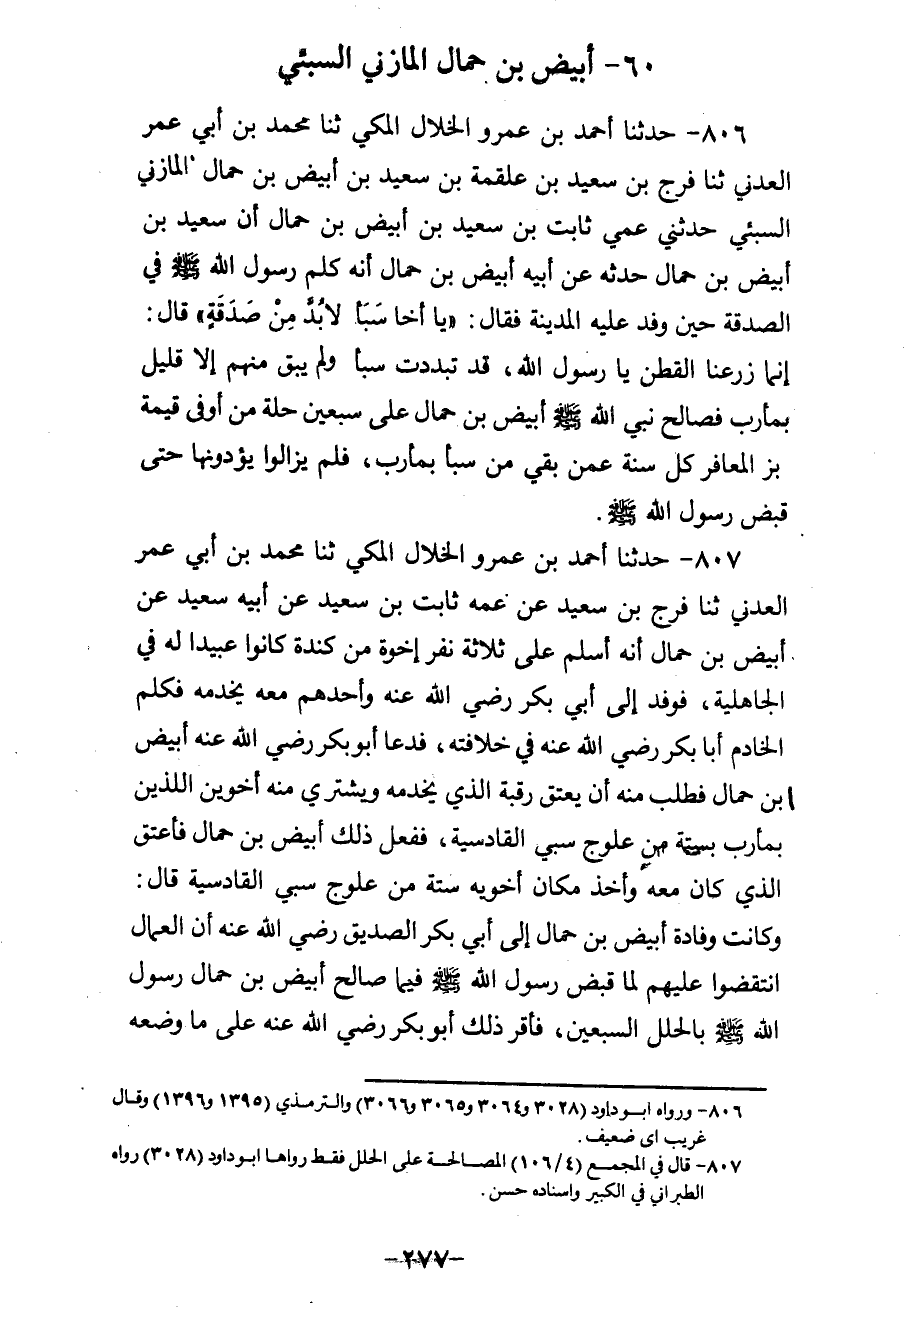 ٦٠- أبيض بن حمال المازني السبئي
٨٠٦- حدثنا أحمد بن عمرو الخلال المكي ثنا محمد بن أبي عمر
العدني ثنا فرج بن سعيد بن علقمة بن سعيد بن أبيض بن حمال المازني
السبئي حدثني عمي ثابت بن سعيد بن أبيض بن حمال أن سعيد بن
أبيض بن حمال حدثه عن أبيه أبيض بن حمال أنه كلم رسول الله ﷺ في
الصدقة حين وفد عليه المدينة فقال: «يا أخا سَبَأ لابُدَّ مِنْ صَدَقَةٍ» قال:
إنما زرعنا القطن يا رسول الله، قد تبددت سبأ ولم يبق منهم إلا قليل
بمأرب فصالح نبي الله ﷺ أبيض بن حمال على سبعين حلة من أوفى قيمة
بز المعافر كل سنة عمن بقي من سبأ بمأرب، فلم يزالوا يؤدونها حتى
قبض رسول الله ﷺ.
٨٠٧- حدثنا أحمد بن عمرو الخلال المكي ثنا محمد بن أبي عمر
العدني ثنا فرج بن سعيد عن عمه ثابت بن سعيد عن أبيه سعيد عن
أبيض بن حمال أنه أسلم على ثلاثة نفر إخوة من كندة كانوا عبيدا له في
الجاهلية، فوفد إلى أبي بكر رضي الله عنه وأحدهم معه يخدمه فكلم
الخادم أبا بكر رضي الله عنه في خلافته، فدعا أبو بكر رضي الله عنه أبيض
ابن حمال فطلب منه أن يعتق رقبة الذي يخدمه ويشتري منه أخوين اللذين
بمأرب بستة من علوج سبي القادسية، ففعل ذلك أبيض بن حمال فأعتق
الذي كان معه وأخذ مكان أخويه ستة من علوج سبي القادسية قال:
وكانت وفادة أبيض بن حمال إلى أبي بكر الصديق رضي الله عنه أن العمال
انتقضوا عليهم لما قبض رسول الله ﷺ فيما صالح أبيض بن حمال رسول
الله ﷺ بالحلل السبعين، فأقر ذلك أبو بكر رضي الله عنه على ما وضعه
٨٠٦- ورواه ابو داود (٣٠٢٨ و٣٠٦٤ و٣٠٦٥ و٣٠٦٦) والترمذي (١٣٩٥ و١٣٩٦) وقال
غريب اى ضعيف.
٨٠٧- قال في المجمع (١٠٦/٤) المصالحة على الحلل فقط رواها ابو داود (٣٠٢٨) رواه
الطبراني في الكبير واسناده حسن.
-٢٧٧-